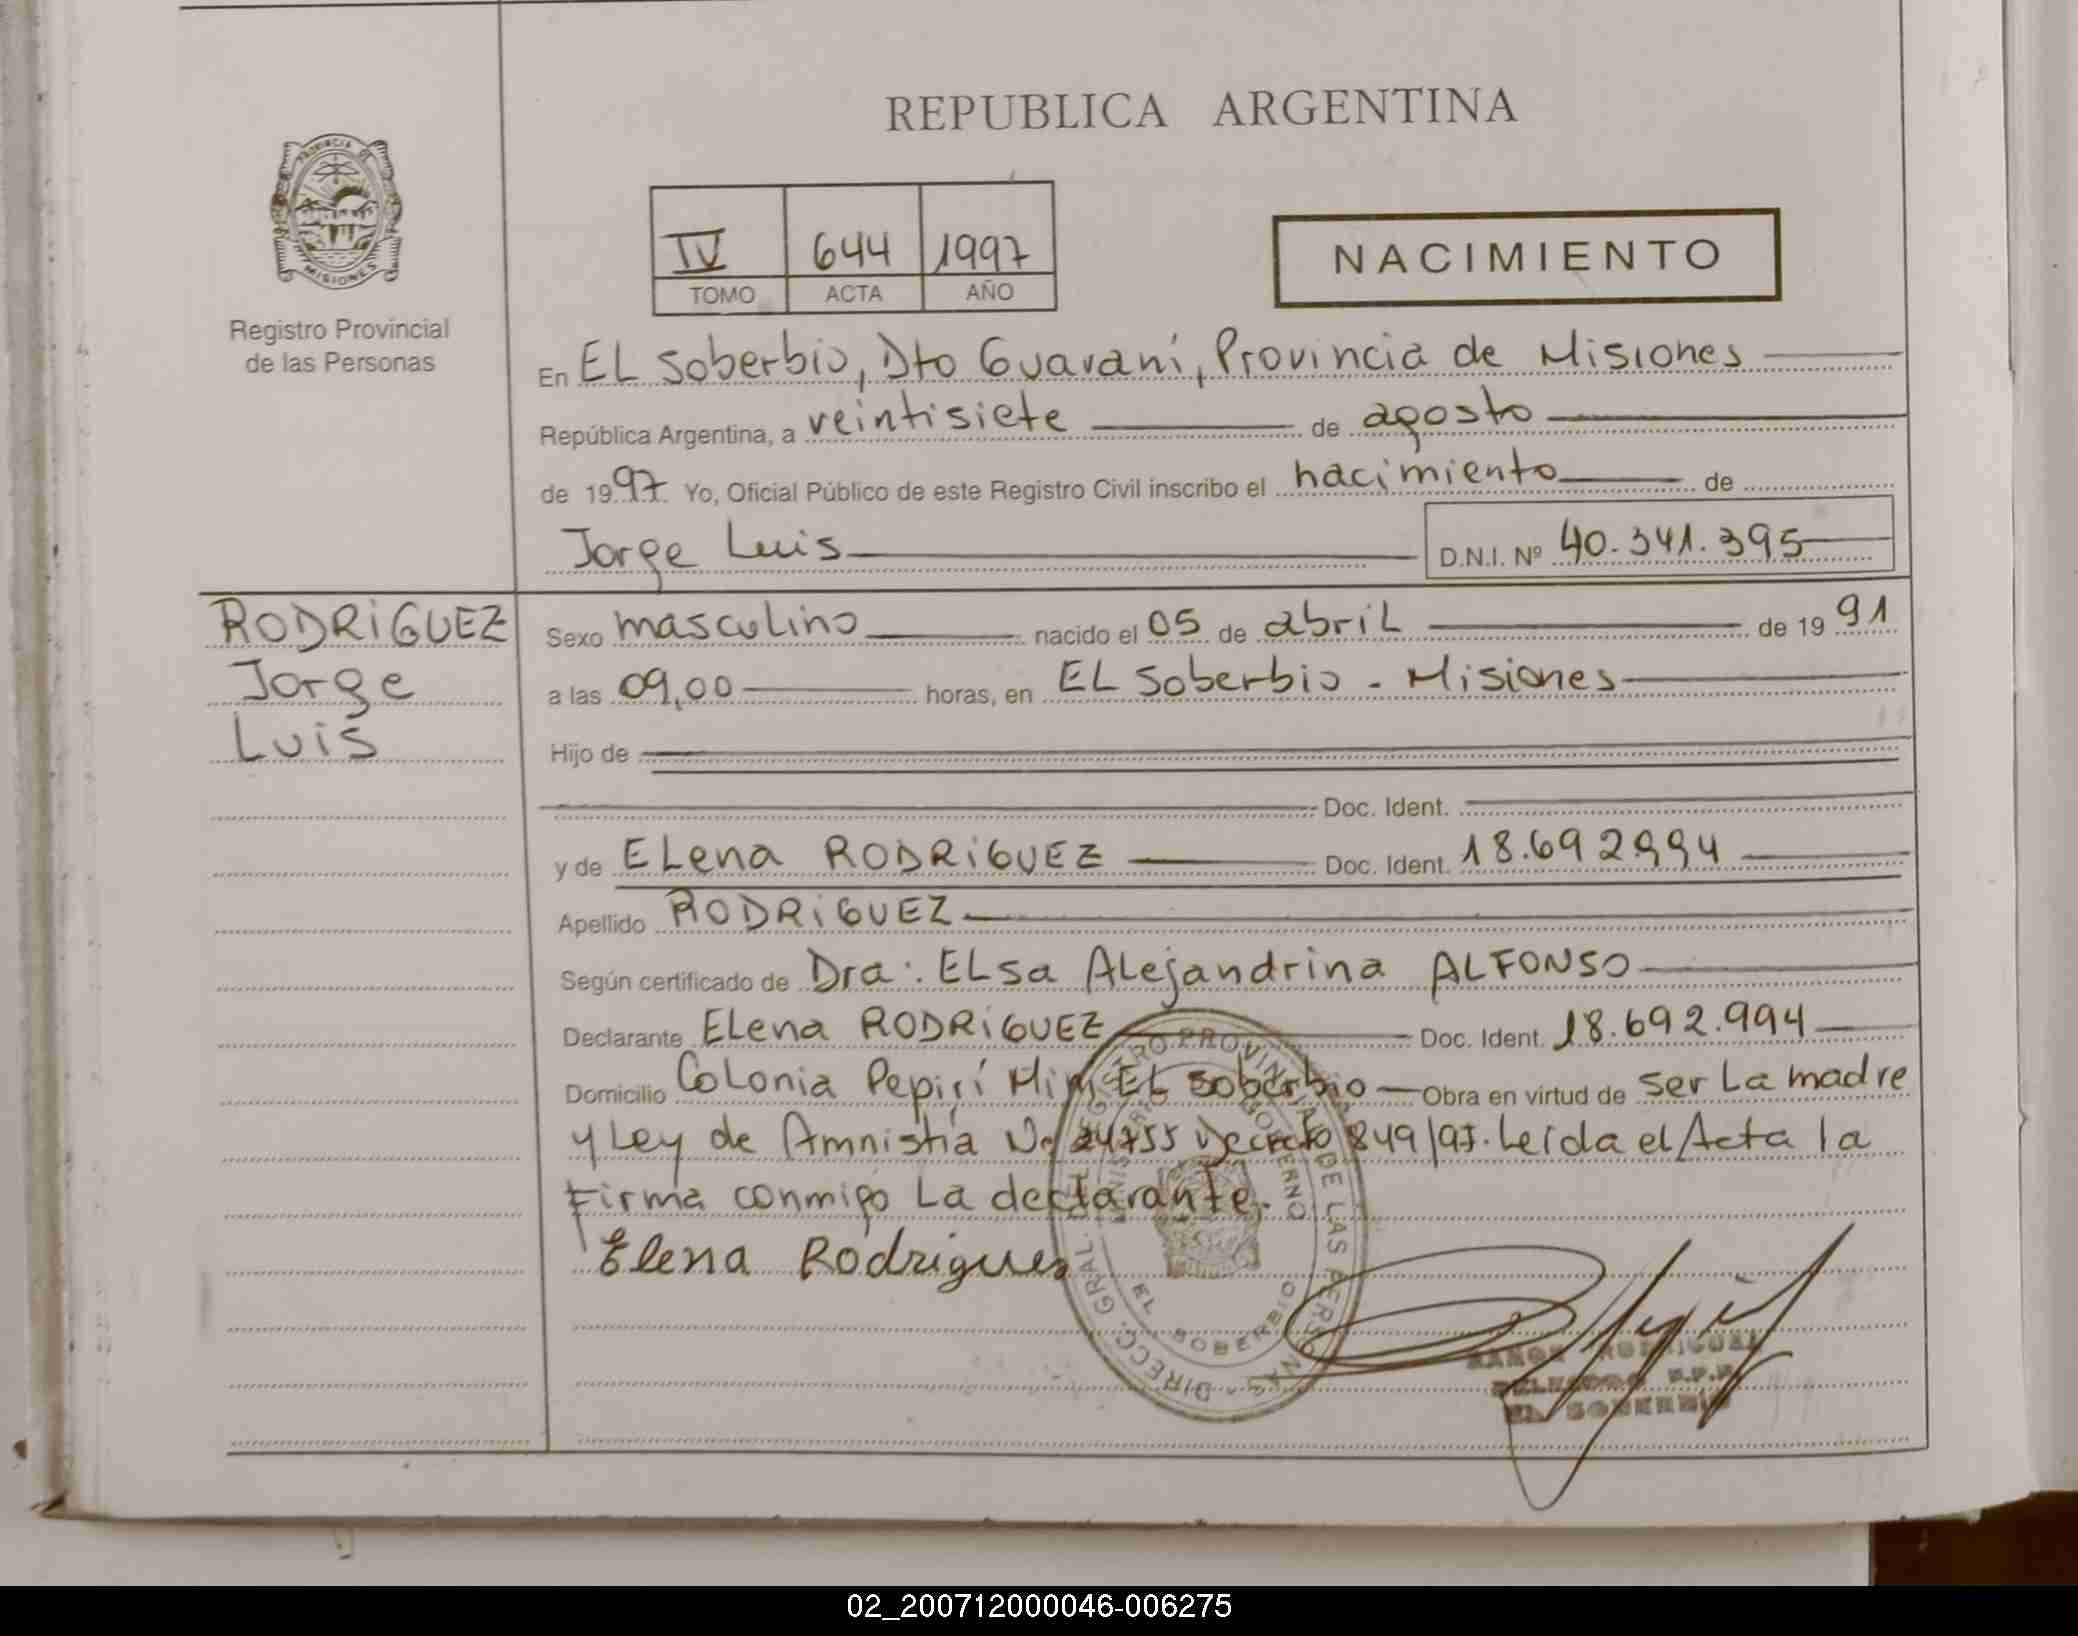 REPUBLICA ARGENTINA
PROVINCIA DE MISIONES
Registro Provincial
de las Personas
IV 644 1997
TOMO ACTA AÑO
NACIMIENTO
En EL Soberbio, Dto Guaraní, Provincia de Misiones
República Argentina, a veintisiete de agosto
de 1997. Yo, Oficial Público de este Registro Civil inscribo el nacimiento de
Jorge Luis D.N.I. Nº 40.341.395
RODRiGUEZ
Jorge
Luis
Sexo masculino nacido el 05 de abril de 1991
a las 09,00 horas, en EL Soberbio - Misiones
Hijo de
Doc. Ident.
y de ELena RODRiGUEZ Doc. Ident. 18.692994
Apellido RODRiGUEZ
Según certificado de Dra: ELsa ALejandrina ALFONSO
Declarante ELena RODRiGUEZ Doc. Ident. 18.692.994
Domicilio CoLonia Pepirí Miní EL Soberbio Obra en virtud de ser La madre
y Ley de Amnistía No 24755 Decreto 849/97. Leída el Acta la
firma conmigo La declarante.
Elena Rodriguez
DIRECC. GRAL. REGISTRO PROVINCIAL DE LAS PERSONAS
GOBIERNO
EL SOBERBIO
EL SOBERBIO
02_200712000046-006275